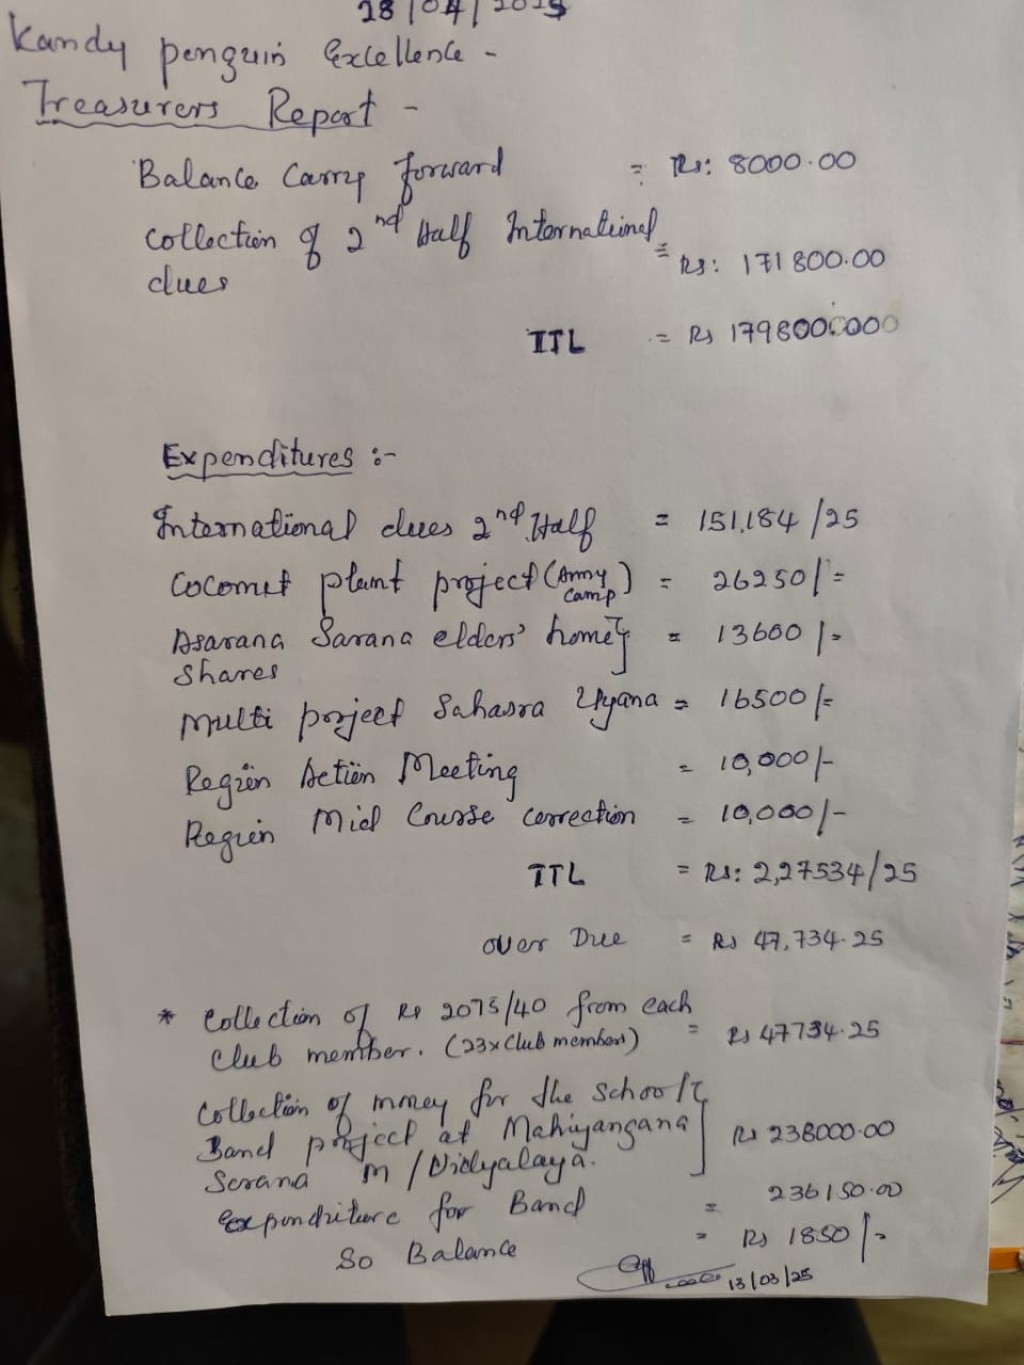 28/04/2025
Kandy penguin Excellence -
Treasurers Report -
Balance Carry forward = Rs: 8000.00
Collection of 2nd Half International dues = Rs: 171800.00
TTL = Rs 179800.00
Expenditures :-
International dues 2nd Half = 151,184/25
Coconut plant project (Army Camp) = 26250/=
Asarana Sarana elders' home shares = 13600/-
Multi project Sahasra Uyana = 16500/=
Region Action Meeting = 10,000/-
Region Mid Course correction = 10,000/-
TTL = Rs: 2,27534/25
over Due = Rs 47,734.25
* Collection of Rs 2075/40 from each club member. (23xclub members) = Rs 47734.25
Collection of money for the School Band project at Mahiyangana Sorana M/Vidyalaya. Rs 238000.00
expenditure for Band = 236150.00
So Balance = Rs 1850/-
13/03/25